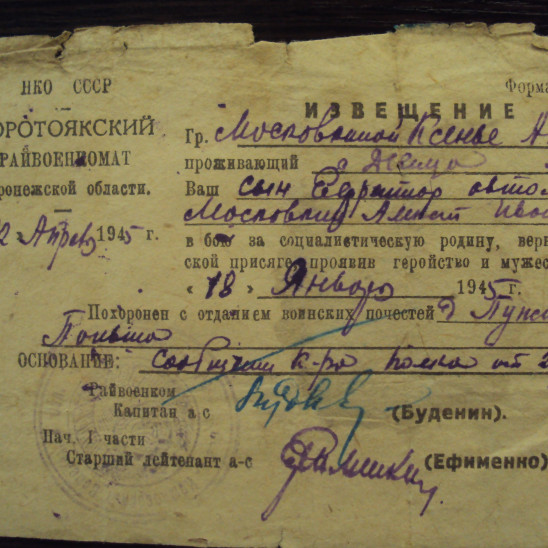 НКО СССР
Форма
ИЗВЕЩЕНИЕ
ОРОТОЯКСКИЙ
РАЙВОЕНКОМАТ
ронежской области.
2 Апреля 1945 г.
Гр. Московкиной Ксенье
проживающий с
Ваш сын Ефрейтор
Московкин
в бою за социалистическую родину, верн
ской присяге, проявив геройство и муже
« 18 » Января 1945 г.
Похоронен с отданием воинских почестей д
Польша
ОСНОВАНИЕ: сообщение к-ра полка от 2
Райвоенком
Капитан а-с
(Буденин).
Нач. I части
Старший лейтенант а-с
(Ефименко)